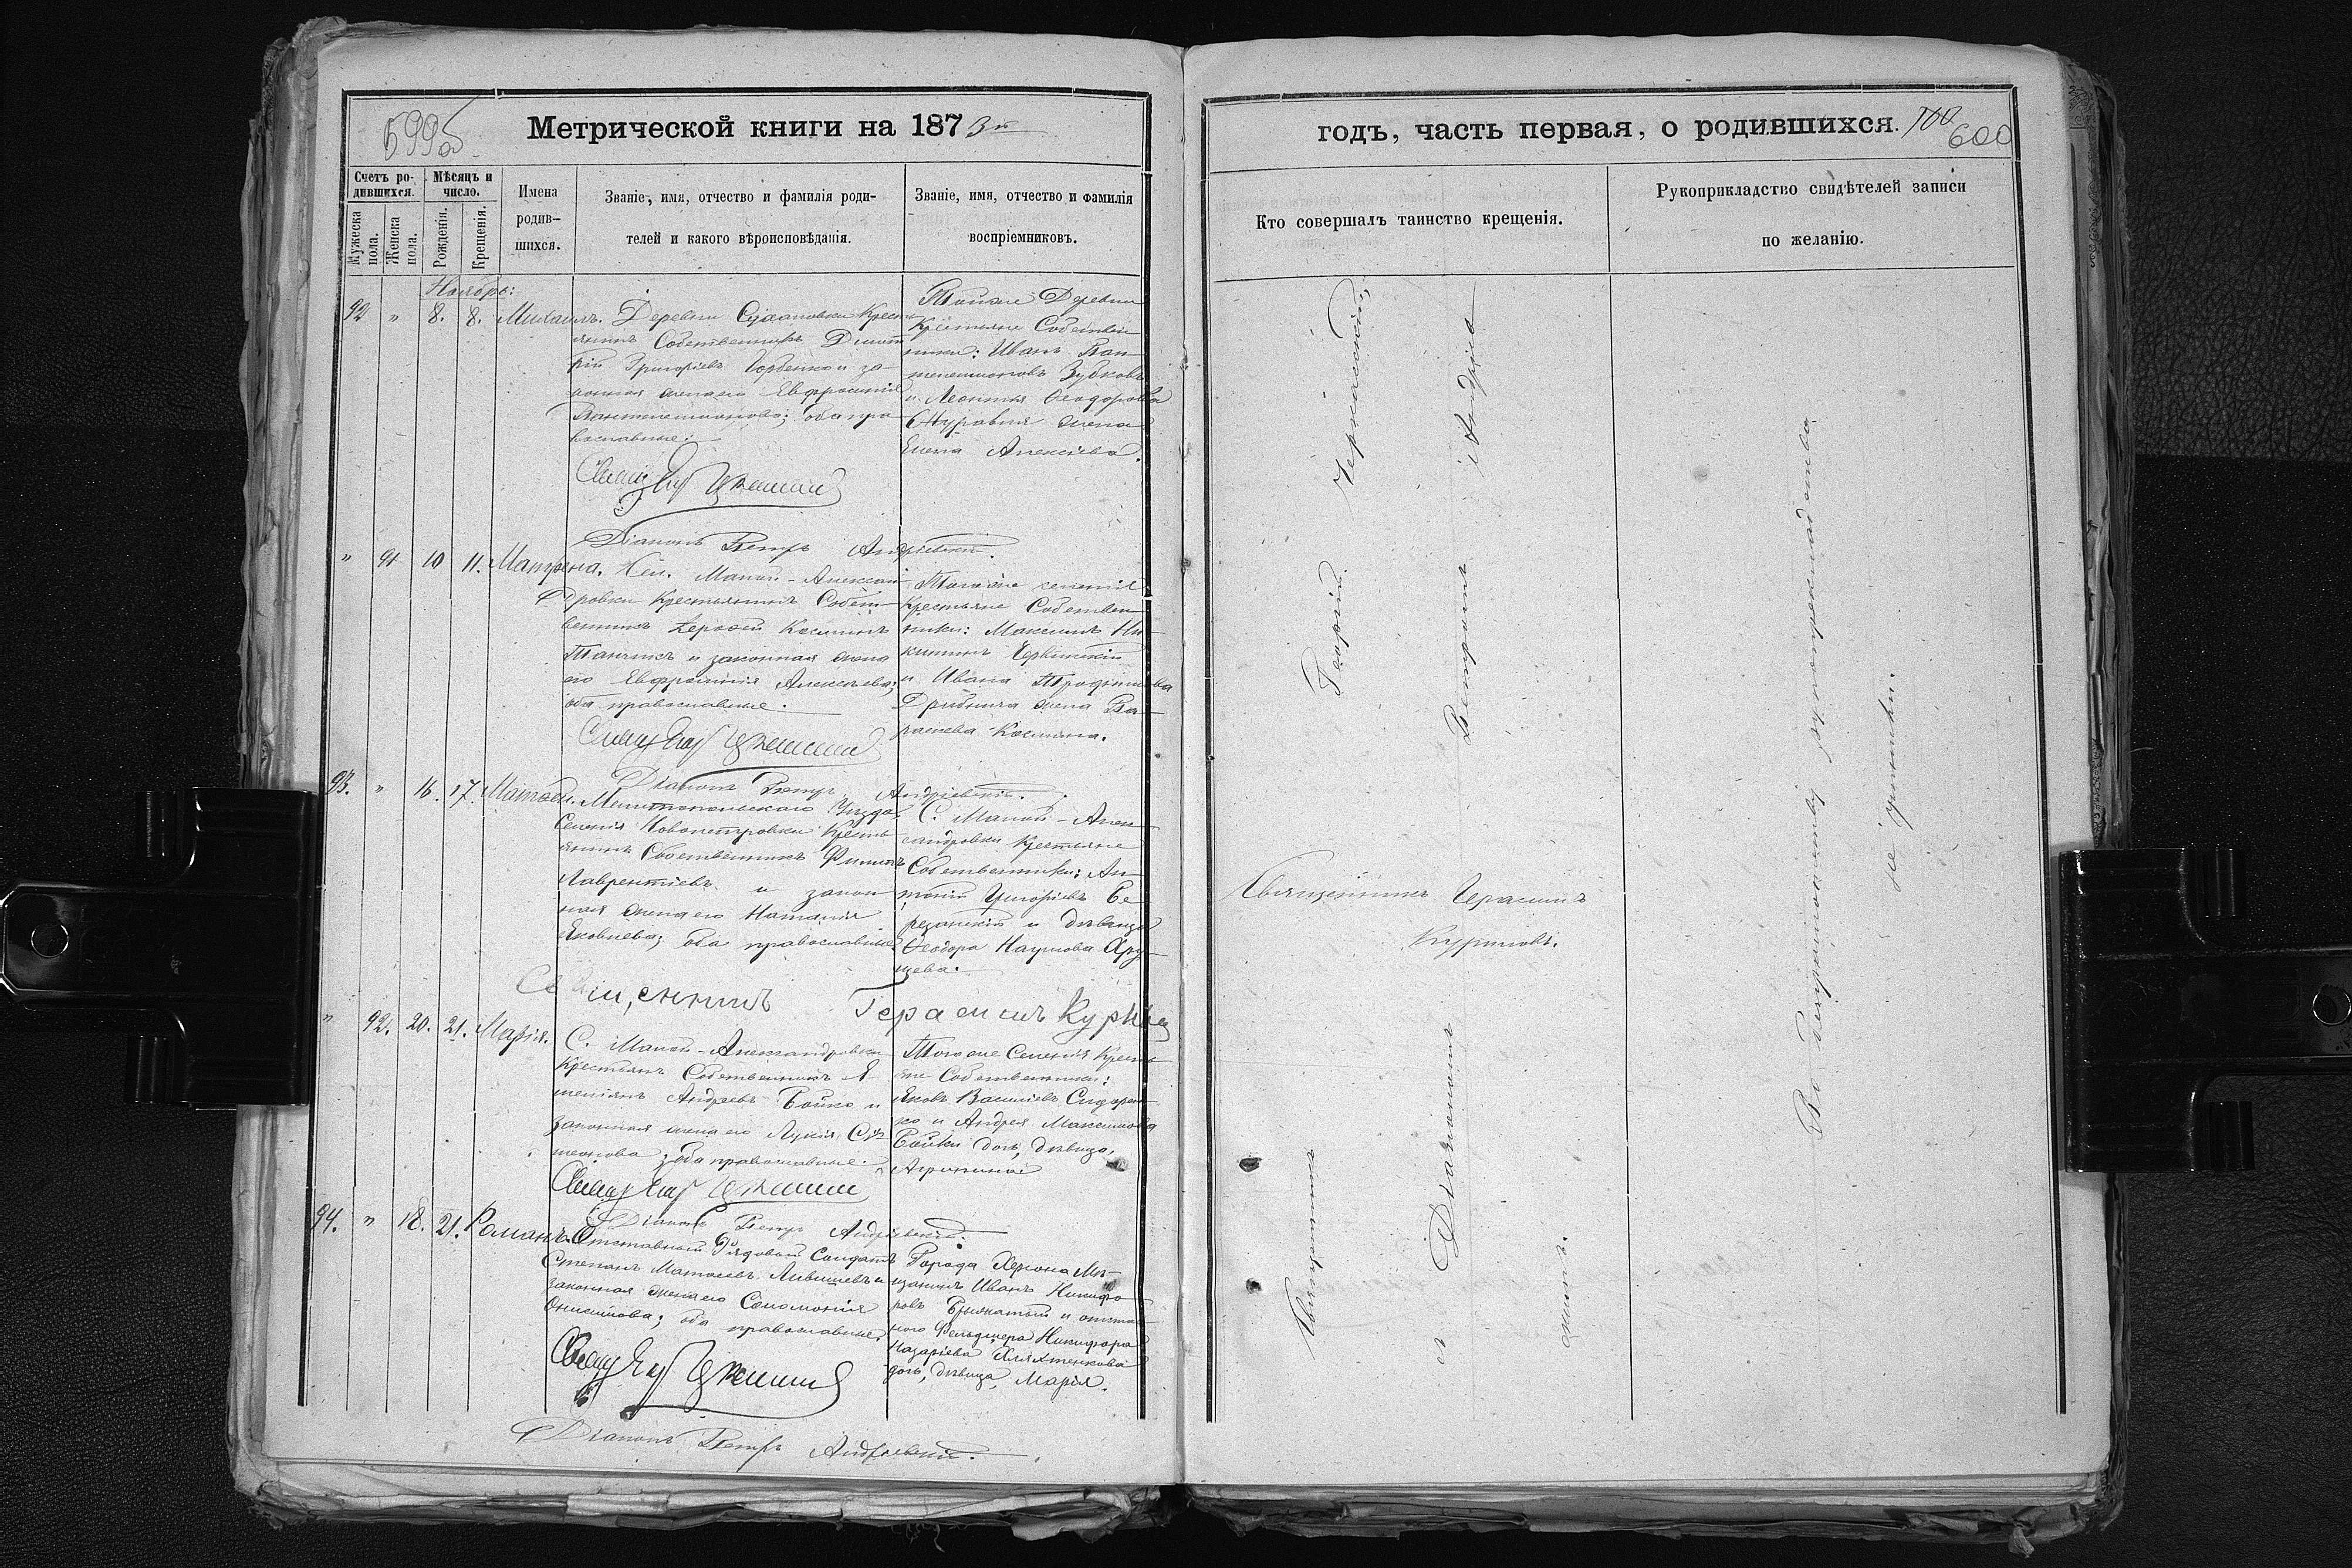 599об
Метрической книги на 1873й
Счетъ ро-
дившихся.
Мѣсяцъ и
число.
Мужеска
пола.
Женска
пола.
Рожденія.
Крещенія.
Имена
родив-
шихся.
Званіе, имя, отчество и фамилія роди-
телей и какого вѣроисповѣданія.
Званіе, имя, отчество и фамилія
воспріемниковъ.
Ноябрь:
92 " 8. 8. Михаилъ.
Деревни Кресть
янинъ Собственникъ Димит
рій Григоріевъ Горбенко и за-
конная жена его Евфросинія
Пантелеимонова; оба пра-
вославные.
Діаконъ Петръ Андріевскій.
Тойже Деревни
Крестьяне Собствен
ники: Иванъ Пан-
телеимоновъ Зубковъ
и Леонтія Ѳеодорова
Журавля жена
Елена Алексіева.
" 91 10 11. Матрена.
Сел. Малой-Алексан
дровки Крестьянинъ Собст-
венникъ Козминъ
и законная жена
его Евфросинія Алексѣева;
оба православные.
Діаконъ Петръ Андріевскій.
Тогоже селенія
Крестьяне Собствен
ники: Максимъ Ни-
китинъ Червинскій
и Ивана Трофимова
жена Па-
раскева Космина.
93. " 16. 17. Матѳей.
Мелитопольскаго Уѣзда
Селенія Новопетровки Кресть
янинъ Собственникъ Филипъ
Лаврентіевъ и закон
ная жена его Наталія
Яковлева; оба православные.
Священникъ Герасимъ Курилов
С. Малой-Алек-
сандровки Крестьяне
Собственники: Ан-
тоній Григоріевъ Бе
резанскій и дѣвица
Ѳеодора Наумова Хру-
щева.
" 92. 20. 21. Марія.
С. Малой-Александровки
Крестьянъ Собственникъ Е-
меліянъ Андреевъ Бойко и
законная жена его Лукія Си-
меонова; оба православные.
Діаконъ Петръ Андріевскій.
Тогоже Селенія Кресть
яне Собственники:
Яковъ Василіевъ Сидорен-
ко и Андрея Максимова
Бойки дочь, дѣвица,
Агрипина
94. " 18. 21. Романъ.
Отставный Рядовой Солдатъ
Степанъ Матѳеевъ и
законная жена его Соломонія
Онисимова; оба православные.
Діаконъ Петръ Андріевскій.
Города Херсона Мѣ-
щанинъ Иванъ Никифо
ровъ и отстав-
ного Фельдшера Никифора
Назаріева
дочь, дѣвица, Марія.
годъ, часть первая, о родившихся.
100
600
Кто совершалъ таинство крещенія.
Рукоприкладство свидѣтелей записи
по желанію.
Священникъ Георгій Черкасскій,
и Діакономъ Петромъ Андріев
скимъ.
Священникъ Герасимъ
Куриловъ.
По безграмотству рукоприкладства
не учинили.